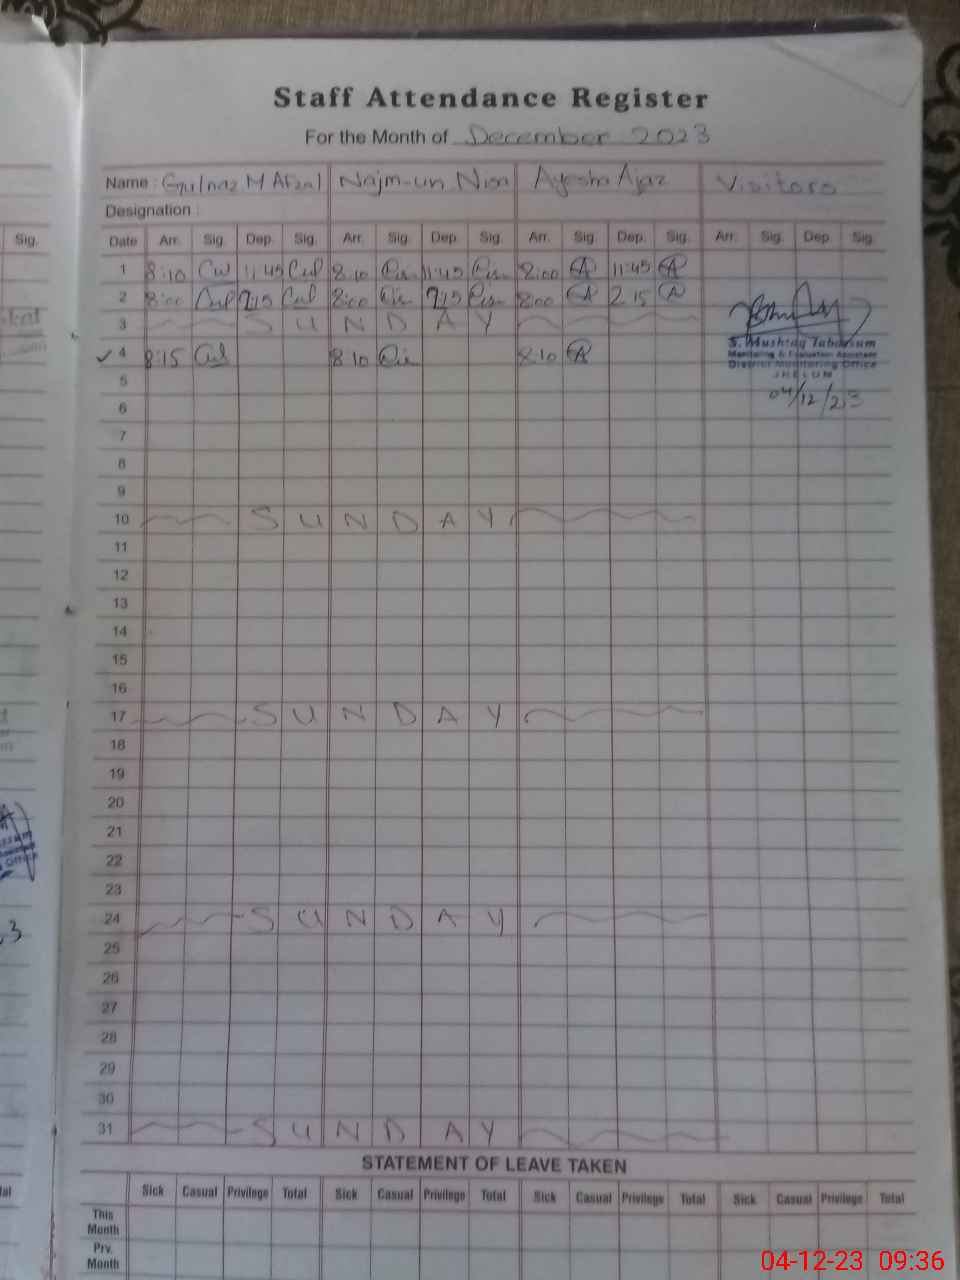 Staff Attendance Register
For the Month of December 2023
Name : Gulnaz M Afzal Najm-un Nisa Ayesha Ajaz Visitors
Designation :
Sig. Date Arr. Sig. Dep. Sig. Arr. Sig. Dep. Sig. Arr. Sig. Dep. Sig. Arr. Sig. Dep. Sig.
1 8:10 11:45 8:10 11:45 8:00 A 11:45 A
2 8:00 2:15 8:00 2:15 8:00 A 2:15 A
3 SUNDAY
✓4 8:15 8:10 8:10 A
S. Mushtaq Tabassum
Monitoring & Evaluation Assistant
District Monitoring Office
JHELUM
04/12/23
5
6
7
8
9
10 SUNDAY
11
12
13
14
15
16
17 SUNDAY
18
19
20
21
22
23
24 SUNDAY
25
26
27
28
29
30
31 SUNDAY
STATEMENT OF LEAVE TAKEN
Sick Casual Privilege Total Sick Casual Privilege Total Sick Casual Privilege Total Sick Casual Privilege Total
This Month
Prv. Month
04-12-23 09:36